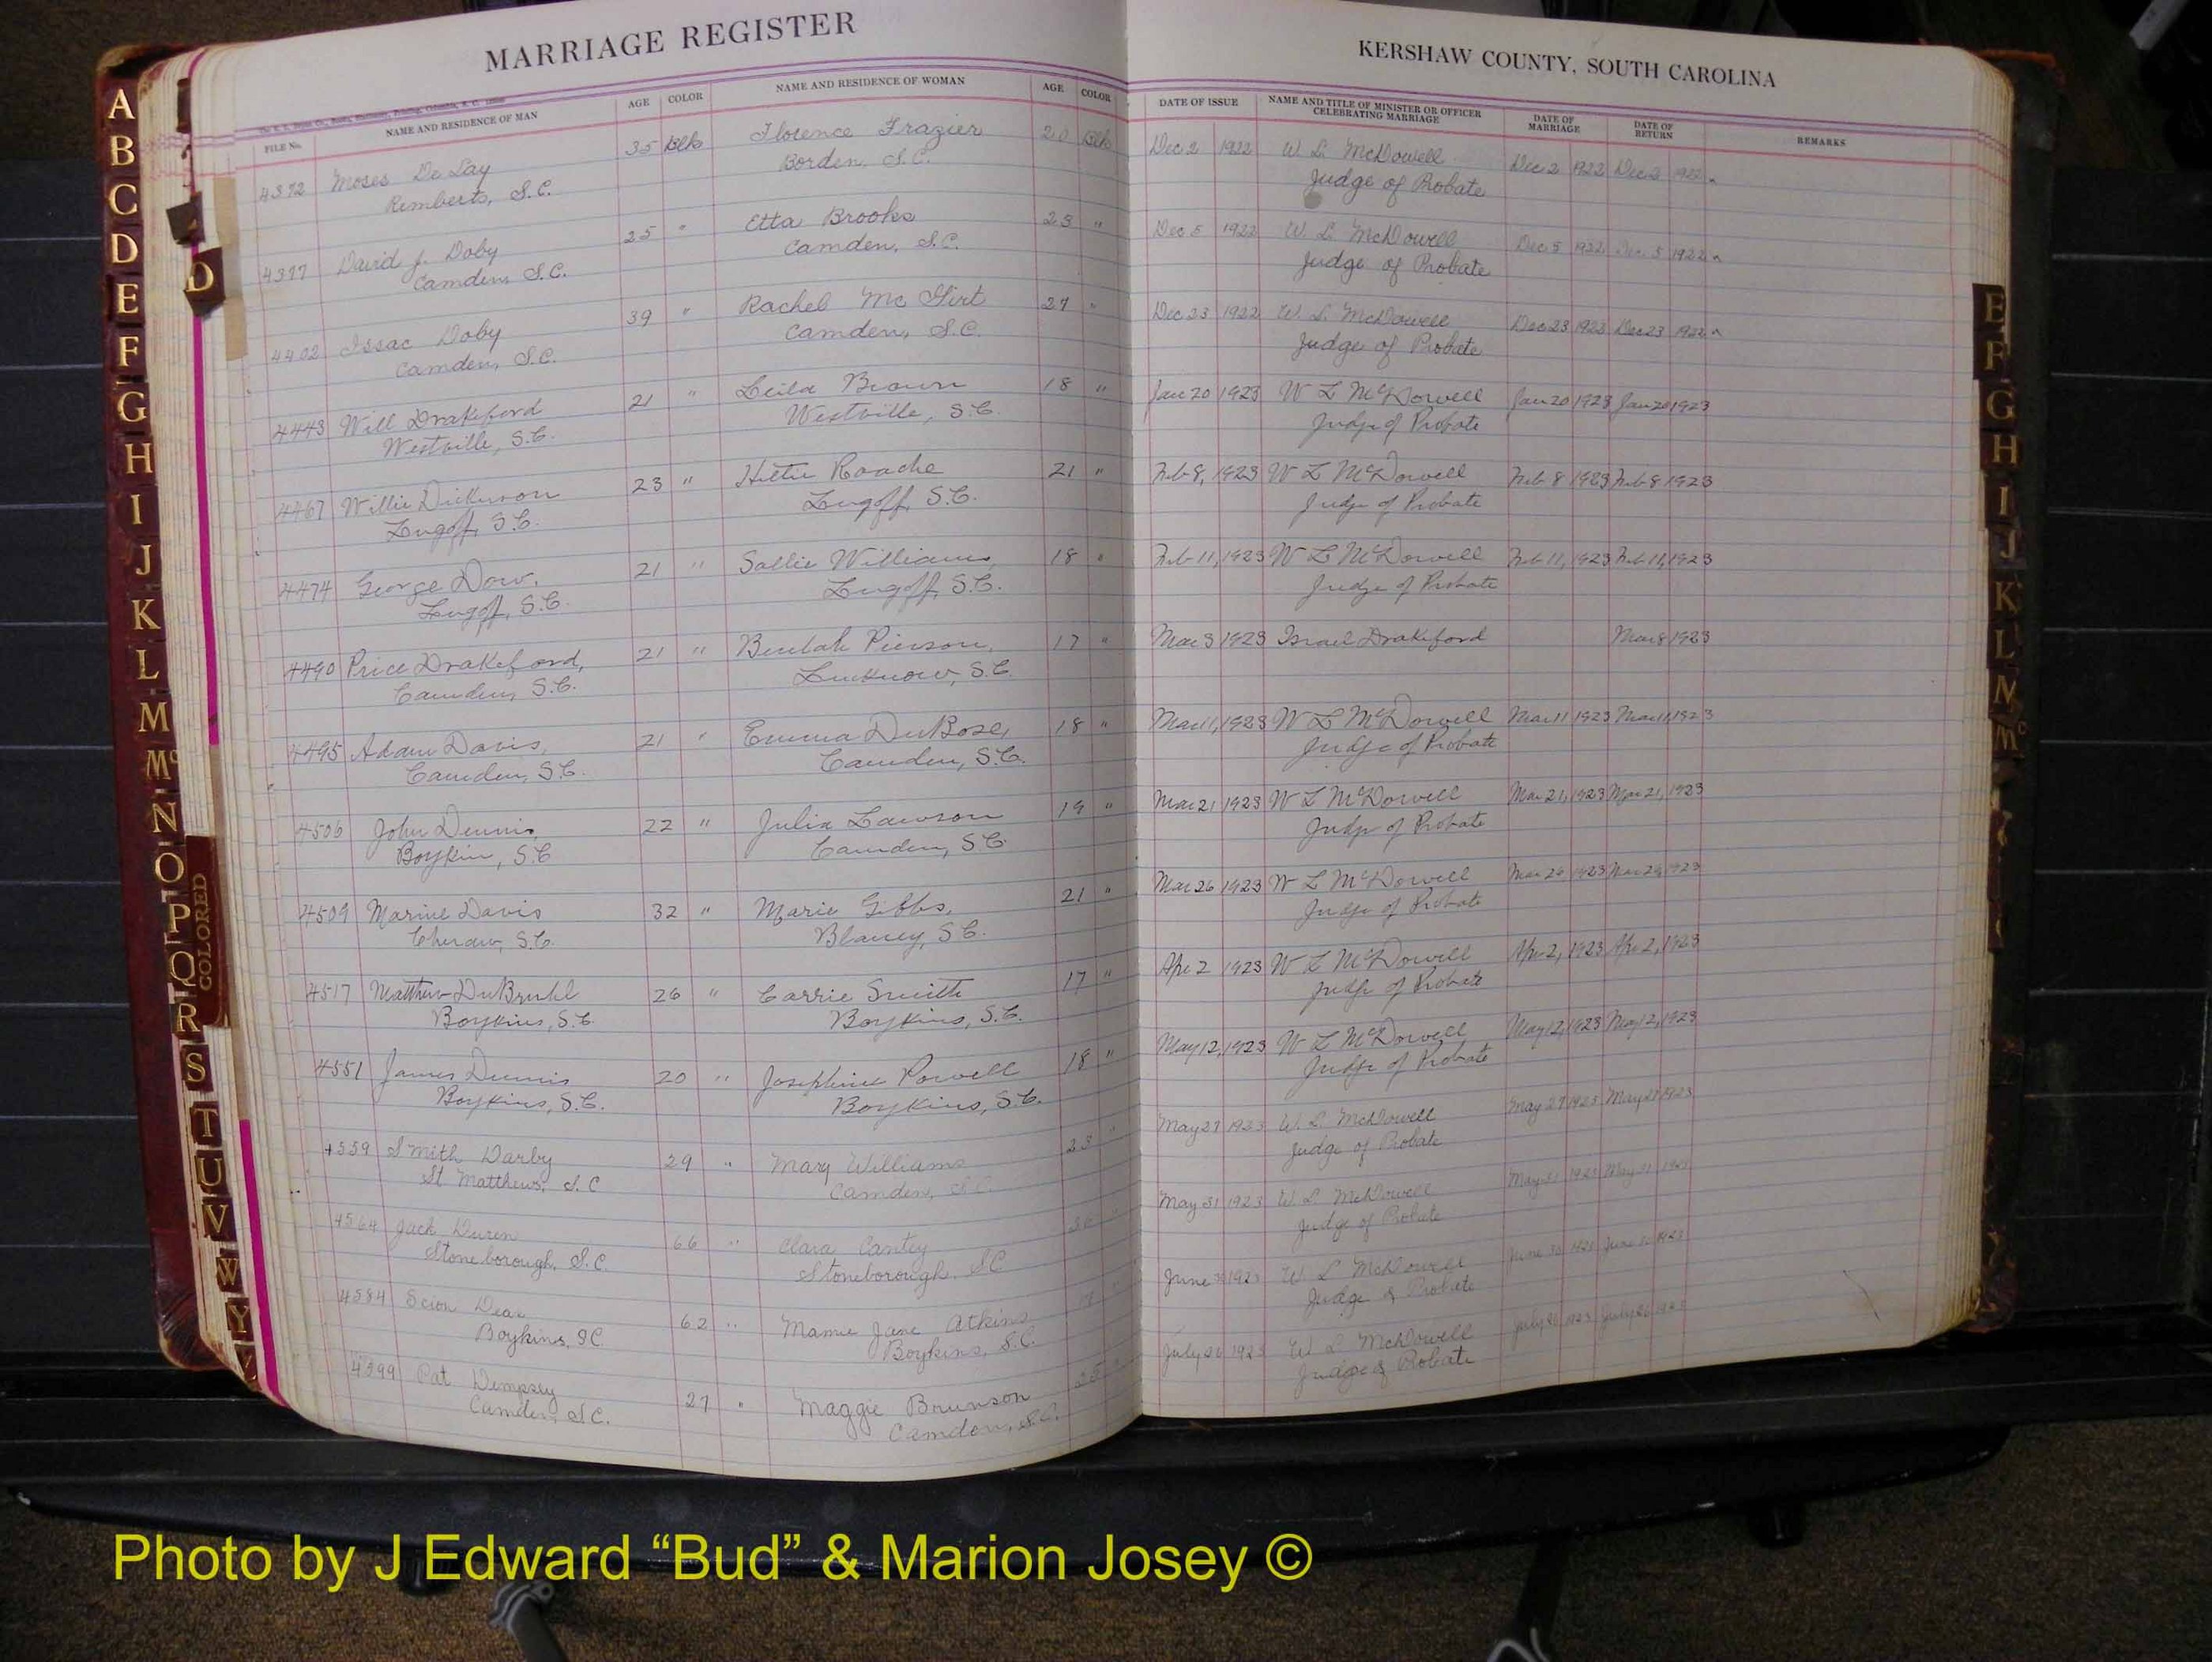 MARRIAGE REGISTER
KERSHAW COUNTY, SOUTH CAROLINA
FILE No. NAME AND RESIDENCE OF MAN AGE COLOR NAME AND RESIDENCE OF WOMAN AGE COLOR DATE OF ISSUE NAME AND TITLE OF MINISTER OR OFFICER CELEBRATING MARRIAGE DATE OF MARRIAGE DATE OF RETURN REMARKS
4372 Moses De Lay 35 Blk Florence Frazier 20 Blk Dec 2 1922 W. L. McDowell Dec 2 1922 Dec 2 1922
Remberts, S.C. Borden, S.C. Judge of Probate
4377 David J. Doby 25 " Etta Brooks 23 " Dec 5 1922 W. L. McDowell Dec 5 1922 Dec 5 1922
Camden, S.C. Camden, S.C. Judge of Probate
4402 Issac Doby 39 " Rachel Mc Girt 27 " Dec 23 1922 W. L. McDowell Dec 23 1922 Dec 23 1922
Camden, S.C. Camden, S.C. Judge of Probate
4443 Will Drakeford 21 " Leila Brown 18 " Jan 20 1923 W L McDowell Jan 20 1923 Jan 20 1923
Westville, S.C. Westville, S.C. Judge of Probate
4467 Willie Dickerson 23 " Hettie Roache 21 " Feb 8, 1923 W L McDowell Feb 8 1923 Feb 8 1923
Lugoff, S.C. Lugoff, S.C. Judge of Probate
4474 George Dow, 21 " Sallie Williams, 18 " Feb 11, 1923 W L McDowell Feb 11, 1923 Feb 11, 1923
Lugoff, S.C. Lugoff, S.C. Judge of Probate
4490 Price Drakeford, 21 " Beulah Pierson, 17 " Mar 3 1923 Israel Drakeford Mar 8 1923
Camden, S.C. Lucknow, S.C.
4495 Adam Davis, 21 " Emma DuBose, 18 " Mar 11, 1923 W L McDowell Mar 11 1923 Mar 11, 1923
Camden, S.C. Camden, S.C. Judge of Probate
4506 John Dennis, 22 " Julia Lawson 19 " Mar 21 1923 W L McDowell Mar 21, 1923 Mar 21, 1923
Boykin, S.C Camden, S.C. Judge of Probate
4509 Marine Davis 32 " Marie Gibbs, 21 " Mar 26 1923 W L McDowell Mar 26 1923 Mar 1923
Cheraw, S.C. Blaney, S.C. Judge of Probate
4517 Matthew DuBruhl 26 " Carrie Smith 17 " Apr 2 1923 W L McDowell Apr 2, 1923 Apr 2, 1923
Boykins, S.C. Boykins, S.C. Judge of Probate
4551 James Dennis 20 " Josephine Powell 18 " May 12, 1923 W L McDowell May 12, 1923 May 12, 1923
Boykins, S.C. Boykins, S.C. Judge of Probate
4559 Smith Darby 29 " Mary Williams 23 " May 27 1923 W. L. McDowell May 27 1923 May 27 1923
St Matthews, S.C Camden, S.C. Judge of Probate
4564 Jack Duren 66 " Clara Cantey May 31 1923 W. L. McDowell May 31 1923 May 31 1923
Stoneborough, S.C. Stoneborough, S.C Judge of Probate
4584 Scion Dear 62 " Mamie Jane Atkins June 1923 W. L McDowell June 30 1923 June 30 1923
Boykins, S.C. Boykins, S.C. Judge of Probate
Pat Dempsey 27 " Maggie Brunson July 26 1923 W L McDowell July 26 1923 July 26 1923
Camden, S.C. Camden, S.C. Judge of Probate
A
B
C
D
E
F
G
H
I
J
K
L
M
Mc
N
O
P
Q
R
S
T
U
V
W
Y
D
COLORED
E
F
G
H
I
J
K
L
M
Mc
Photo by J Edward “Bud” & Marion Josey ©